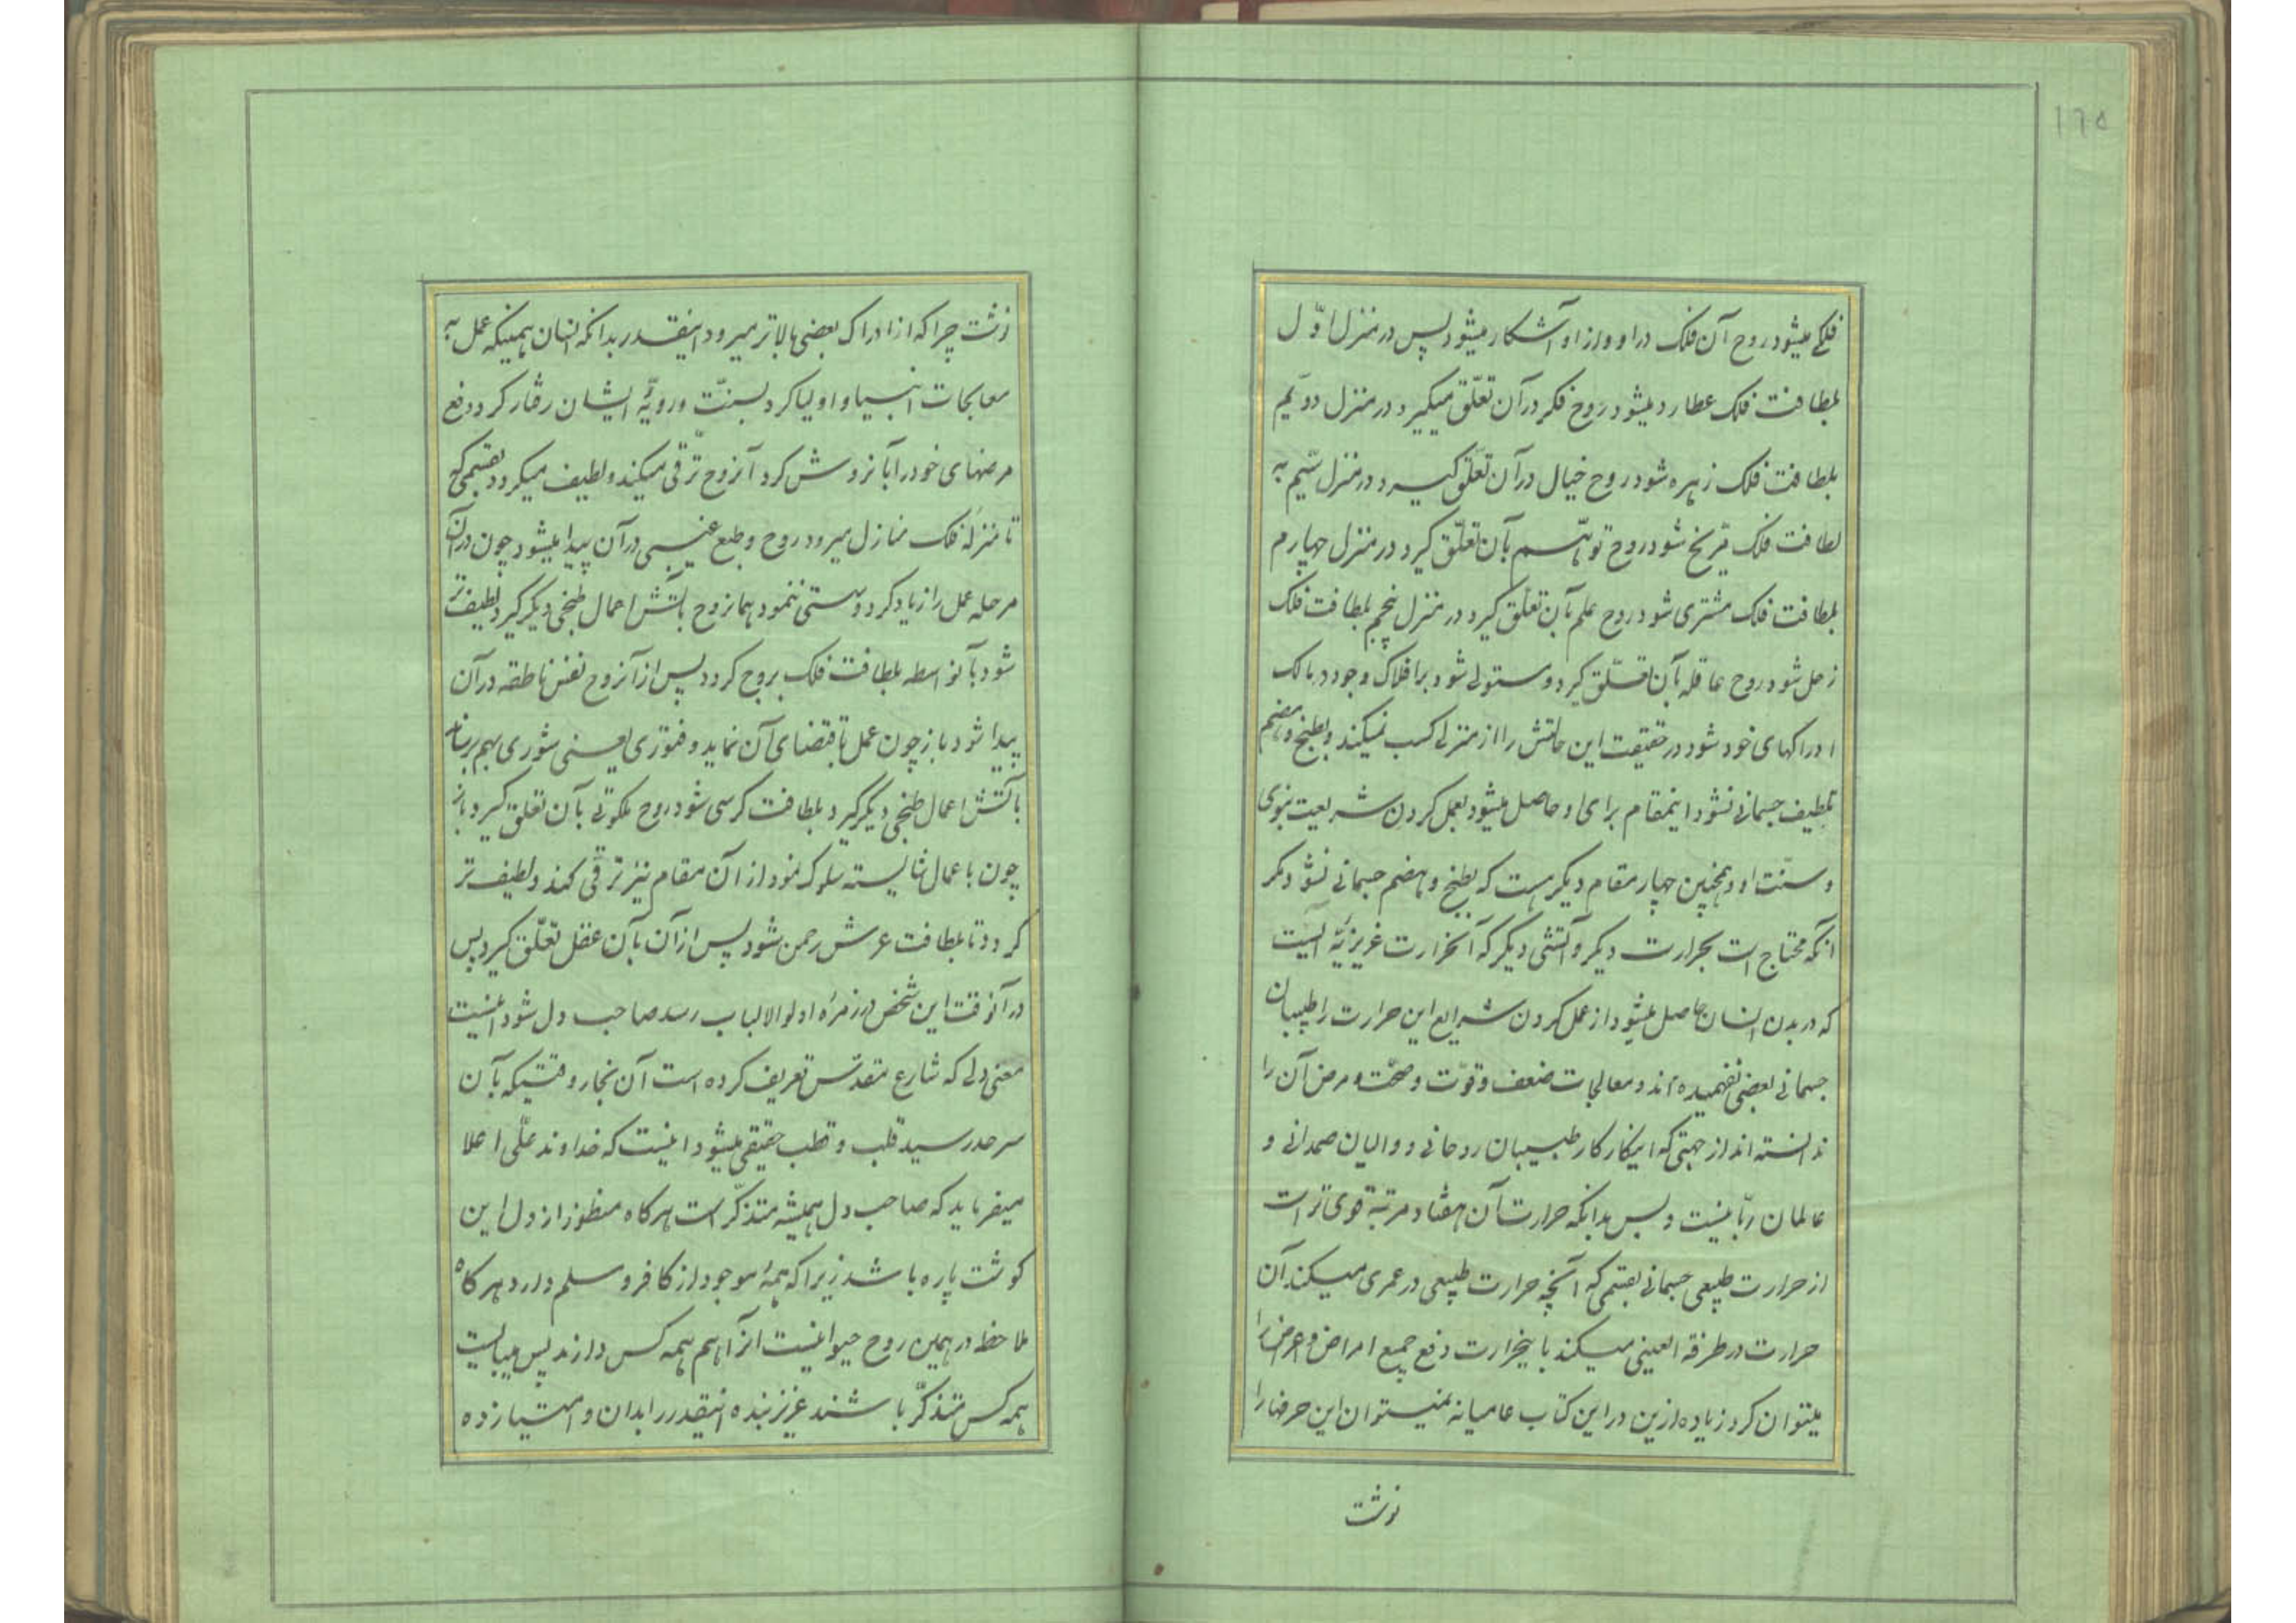 ١٦٥
فلکی میشود روح آن فلک در او و از او آشکار میشود پس در منزل اوّل
بلطافت فلک عطارد میشود روح فکر در آن تعلّق میگیرد و در منزل دویم
بلطافت فلک زهره شود روح خیال در آن تعلّق گیرد و در منزل سّیم به
لطافت فلک مرّیخ شود روح توهّم بآن تعلّق گیرد و در منزل چهارم
بلطافت فلک مشتری شود روح علم بآن تعلّق گیرد و در منزل پنجم بلطافت فلک
زحل شود روح عاقله بآن تعلّق گیرد و مستولی شود بر افلاک وجود و مالک
ادراکهای خود شود در حقیقت این حالتش را از منزلی کسب نمیکند و بطبخ و هضم
تلطیف جسمانی نشود اینمقام برای او حاصل میشود بعمل کردن شریعت نبوی
و سنّت او و همچنین چهار مقام دیگر هست که بطبخ و هضم جسمانی نشود مگر
آنکه محتاج است بحرارت دیگر و آتشی دیگر که آنحرارت غریزیّهٔ الهیست
که در بدن انسان حاصل میشود از عمل کردن شرایع این حرارت را طبیبان
جسمانی بعضی نفهمیده‌اند و معالجات ضعف و قوّت و صحّت و مرض آن را
ندانسته‌اند از جهتی که اینکار کار طبیبان روحانی و والیان صمدانی و
عالمان ربّانیست و بس بدانکه حرارت آن هفتاد مرتبه قوی‌تر است
از حرارت طبیعی جسمانی بقسمی که آنچه حرارت طبیعی در عمری میکند آن
حرارت در طرفة العینی میکند باینحرارت دفع جمیع امراض و اعراض را
میتوان کرد زیاده ازین در این کتاب عامیانه نمیتوان این حرفها را
نوشت
نوشت چرا که از ادراک بعضی بالاتر میرود اینقدر بدانکه انسان همینکه عمل به
معالجات انبیا و اولیا کرد بسنّت و رویّهٔ ایشان رفتار کرد و دفع
مرضهای خود را بآنروش کرد آنروح ترّقی میکند و لطیف میگردد بقسمی که
تا منزلهٔ فلک منازل میرود روح و طبع غیبی در آن پیدا میشود چون در آن
مرحله عمل را زیاد کرد و سستی ننمود همانروح بآتش اعمال طبخی دیگر گیرد لطیف‌تر
شود بآنواسطه بلطافت فلک بروج گردد پس از آنروح نفس ناطقه در آن
پیدا شود باز چون عمل بمقتضای آن نماید و فتوری یعنی شوری بهم نرساند
بآتش اعمال طبخی دیگر گیرد بلطافت کرسی شود روح ملکوتی بآن تعلق گیرد باز
چون باعمال شایسته سلوک نمود از آن مقام نیز ترّقی کند و لطیف‌تر
گردد تا بلطافت عرش رحمن شود پس از آن بآن عقل تعلّق گیرد پس
در آنوقت این شخص در زمرهٔ اولوالالباب رسد صاحب دل شود اینست
معنی دلی که شارع مقدّس تعریف کرده است آن بخار وقتیکه بآن
سرحد رسید قلب و قطب حقیقی میشود اینست که خداوند علّی اعلا
میفرماید که صاحب دل همیشه متذکّر است هرگاه منظور از دل این
گوشت پاره باشد زیرا که همهٔ موجود از کافر و مسلم دارد هرگاه
ملاحظه در همین روح حیوانیست آنرا هم همه کس دارند پس میبایست
همه کس متذکّر باشند عزیز بنده اینقدر را بدان و امتیاز ده